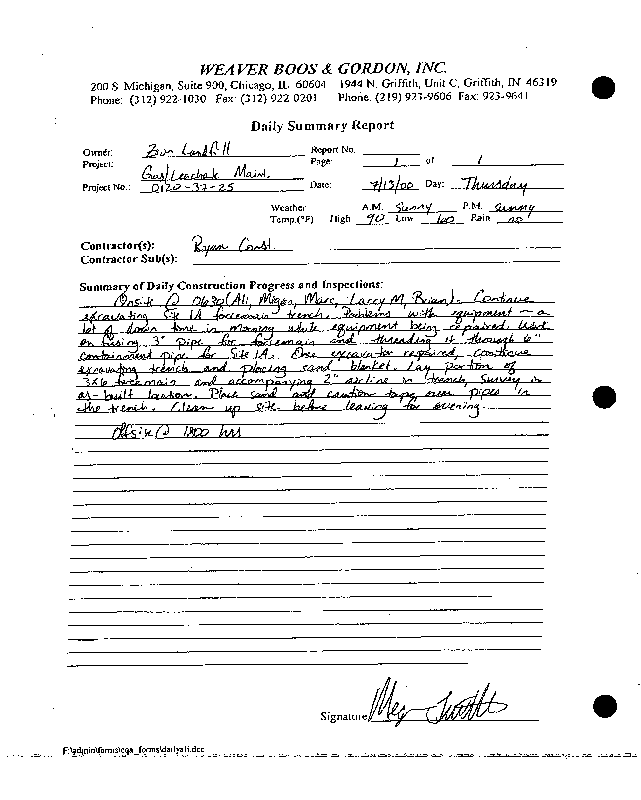 WEAVER BOOS & GORDON, INC.
200 S. Michigan, Suite 900, Chicago, IL 60604 1944 N. Griffith, Unit C, Griffith, IN 46319
Phone: (312) 922-1030 Fax: (312) 922-0201 Phone: (219) 923-9606 Fax: 923-9641
Daily Summary Report
Owner: Zion Landfill Report No.
Project: Gas/Leachate Maint. Page: 1 of 1
Project No.: 0120-37-25 Date: 7/13/00 Day: Thursday
Weather A.M. Sunny P.M. Sunny
Temp.(°F) High 90 Low 60 Rain no
Contractor(s): Ryan Const.
Contractor Sub(s):
Summary of Daily Construction Progress and Inspections:
Onsite @ 0630 (Ali, Marc, Larry M, Brian). Continue
excavating Site 1A forcemain trench. Problems with equipment - a
lot of down time in morning while equipment being repaired. Work
on fusing 3" pipe for forcemain and threading it through 6"
containment pipe for Site 1A. One excavator repaired, continue
excavating trench and placing sand blanket. Lay portion of
3x6 forcemain and accompanying 2" airline in trench, survey in
as-built location. Place sand and caution tape over pipes in
the trench. Clean up site before leaving for evening.
Offsite @ 1800 hrs
Signature Meg
F:\admin\forms\cqa_forms\dailyall.doc